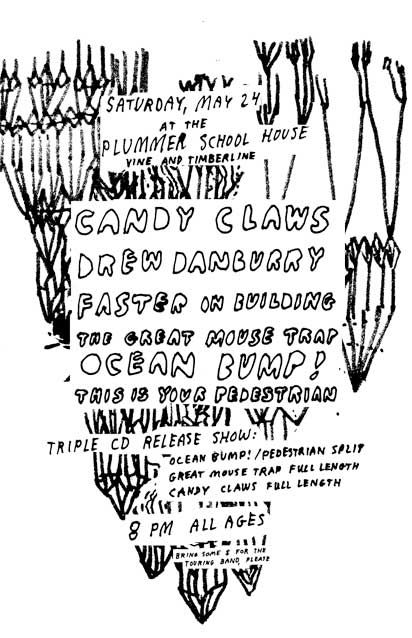 SATURDAY, MAY 24
AT THE
PLUMMER SCHOOL HOUSE
VINE AND TIMBERLINE
CANDY CLAWS
DREW DANBURRY
FASTER ON BUILDING
THE GREAT MOUSE TRAP
OCEAN BUMP!
THIS IS YOUR PEDESTRIAN
TRIPLE CD RELEASE SHOW:
OCEAN BUMP!/PEDESTRIAN SPLIT
GREAT MOUSE TRAP FULL LENGTH
CANDY CLAWS FULL LENGTH
8 PM ALL AGES
BRING SOME $ FOR THE
TOURING BAND, PLEASE